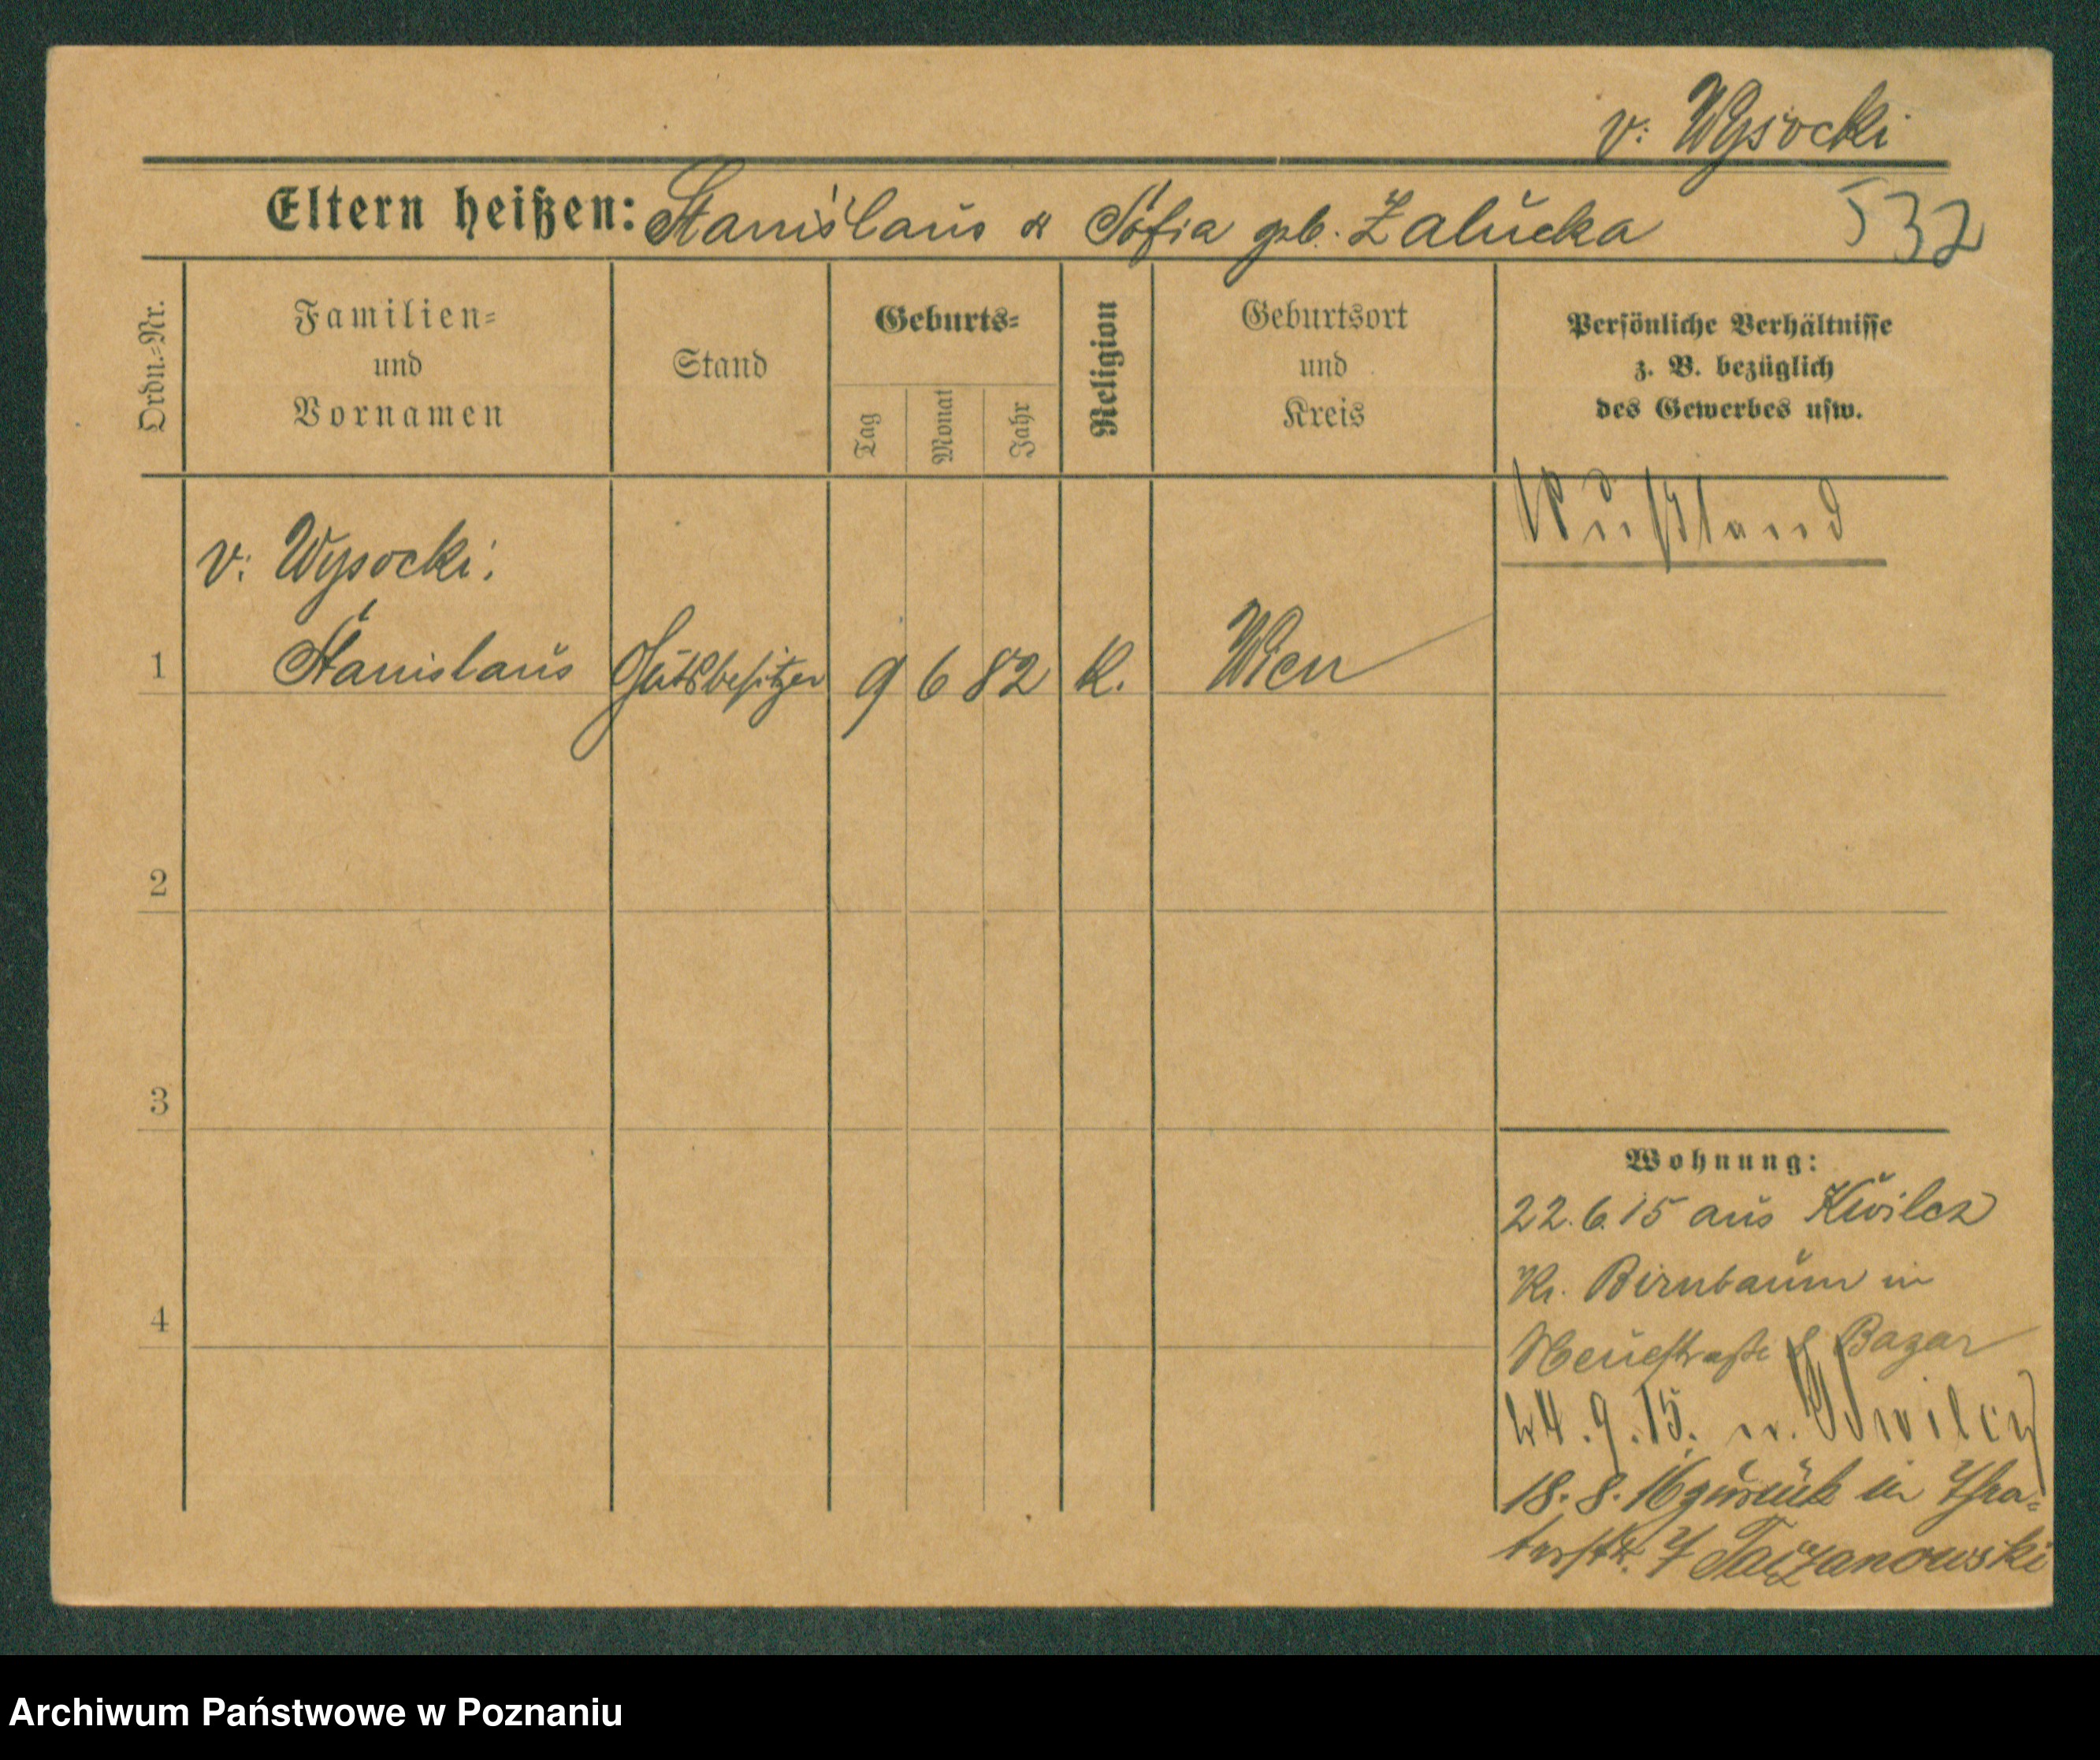 v. Wysocki
Eltern heißen: Stanislaus & Sofia geb. Zalucka
532
Ordn.-Nr.
Familien- und Vornamen
Stand
Geburts-
Tag
Monat
Jahr
Religion
Geburtsort und Kreis
Persönliche Verhältnisse
z. B. bezüglich
des Gewerbes usw.
Rußland
v. Wysocki
1 Stanislaus Gutsbesitzer 9 6 82 K. Wien
2
3
4
Wohnung:
22.6.15 aus Kwilcz
Kr. Birnbaum in
Neuestraße Bazar
24.9.15. n. Kwilcz
18.8.16 zurück in Thea-
terstr.
Archiwum Państwowe w Poznaniu